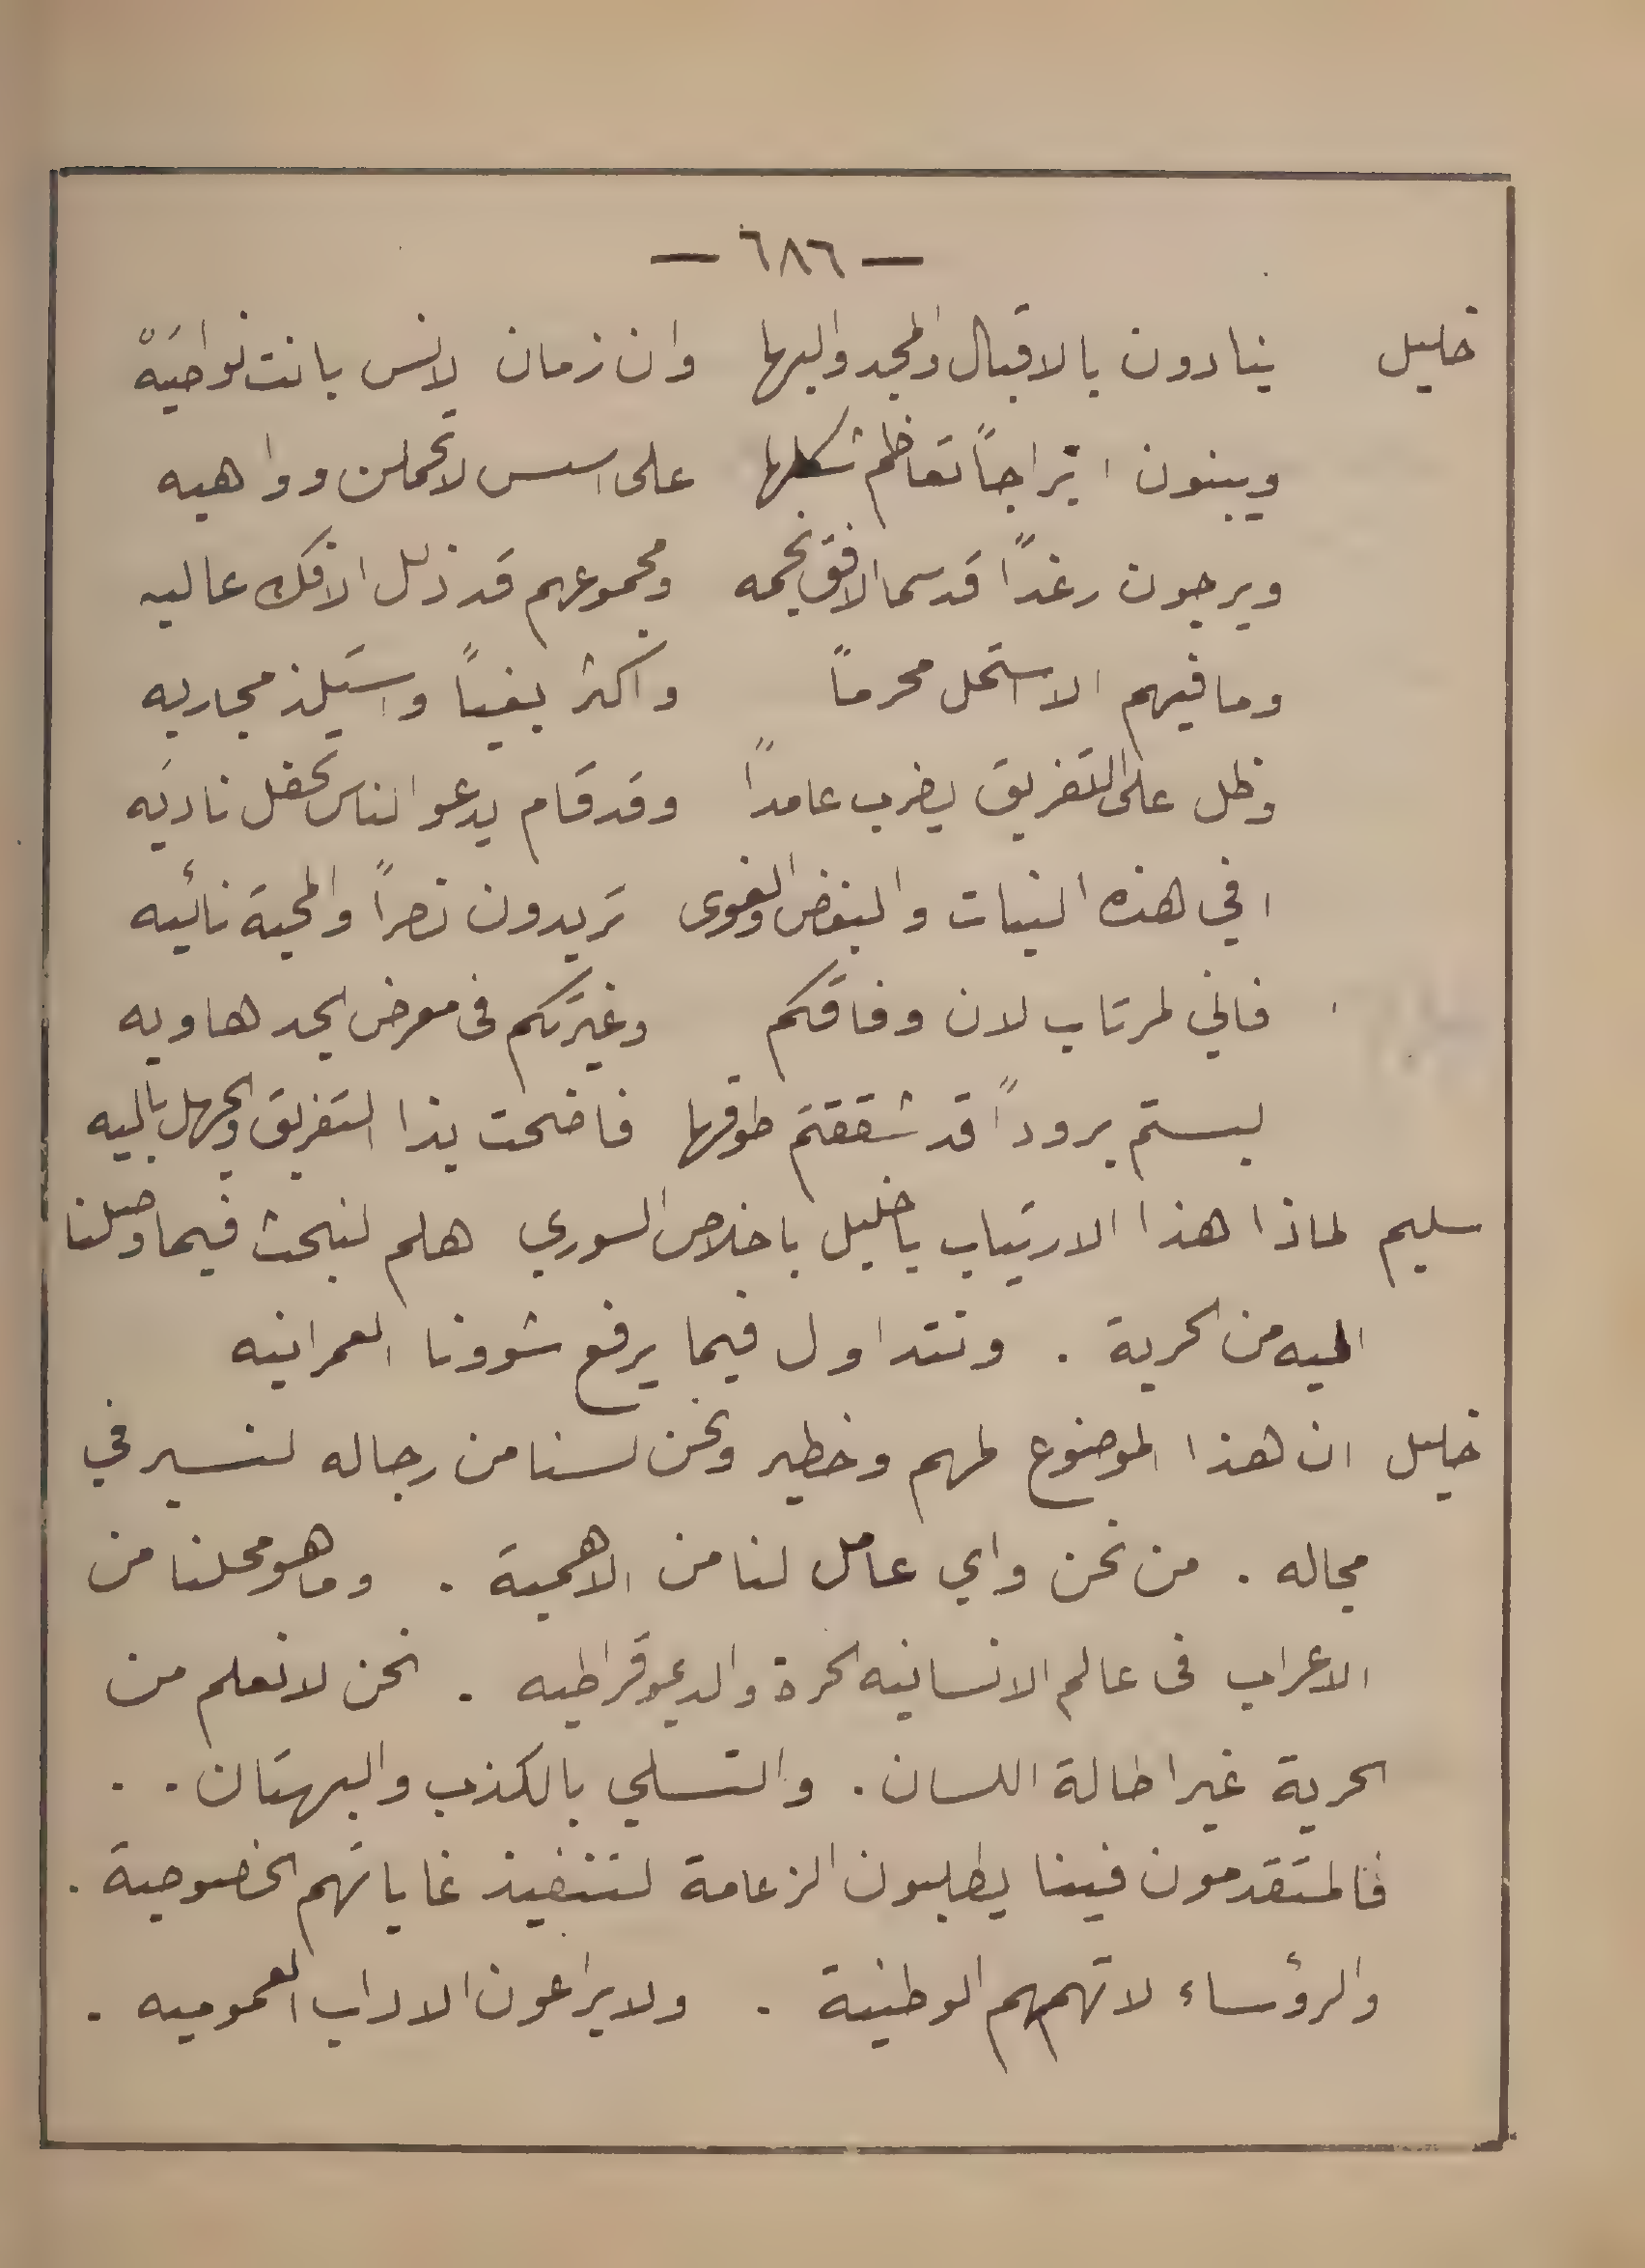 — ٦٨٦ —
خليل ينادون بالاقبال والمجد والبها وان زمان الانس بانت نواحيَهْ
ويبنون ابراجاً تعاظم شكلها على اسس لا تحملن وواهيه
ويرجون رغداً قد سما الافق نجمه ومجموعهم قد ذلل الافك عاليه
وما فيهم الا استحل محرماً واكثر بغياً واستلذ مجاريه
وظل على التفريق يضرب عامداً وقد قام يدعو الناس تحفل ناديَه
افي هذه النيات والبغض والغوى تريدون نصراً والمحبة نائيه
فاني لمرتاب لان وفاقكم وغيرتكم في معرض الجد هاويه
لبستم بروداً قد شققتم طوقها فاضحت بذا التفريق والجهل باليه
سليم لماذا هذا الارتياب يا خليل باخلاص السوري هلم لنبحث فيما وصلنا
اليه من الحرية . ونتداول فيما يرفع شوونا العمرانيه
خليل ان هذا الموضوع لمهم وخطير ونحن لسنا من رجاله لنسير في
مجاله . من نحن واي عامل لنا من الاهمية . وما هو محلنا من
الاعراب في عالم الانسانيه الحرة والديموقراطيه . نحن لا نعلم من
الحرية غير اطالة اللسان . والتسلي بالكذب والبهتان . .
فالمتقدمون فينا يطلبون الزعامة لتنفيذ غاياتهم الخصوصية .
والرؤساء لا تهمهم الوطنية . ولا يراعون الاداب العموميه .